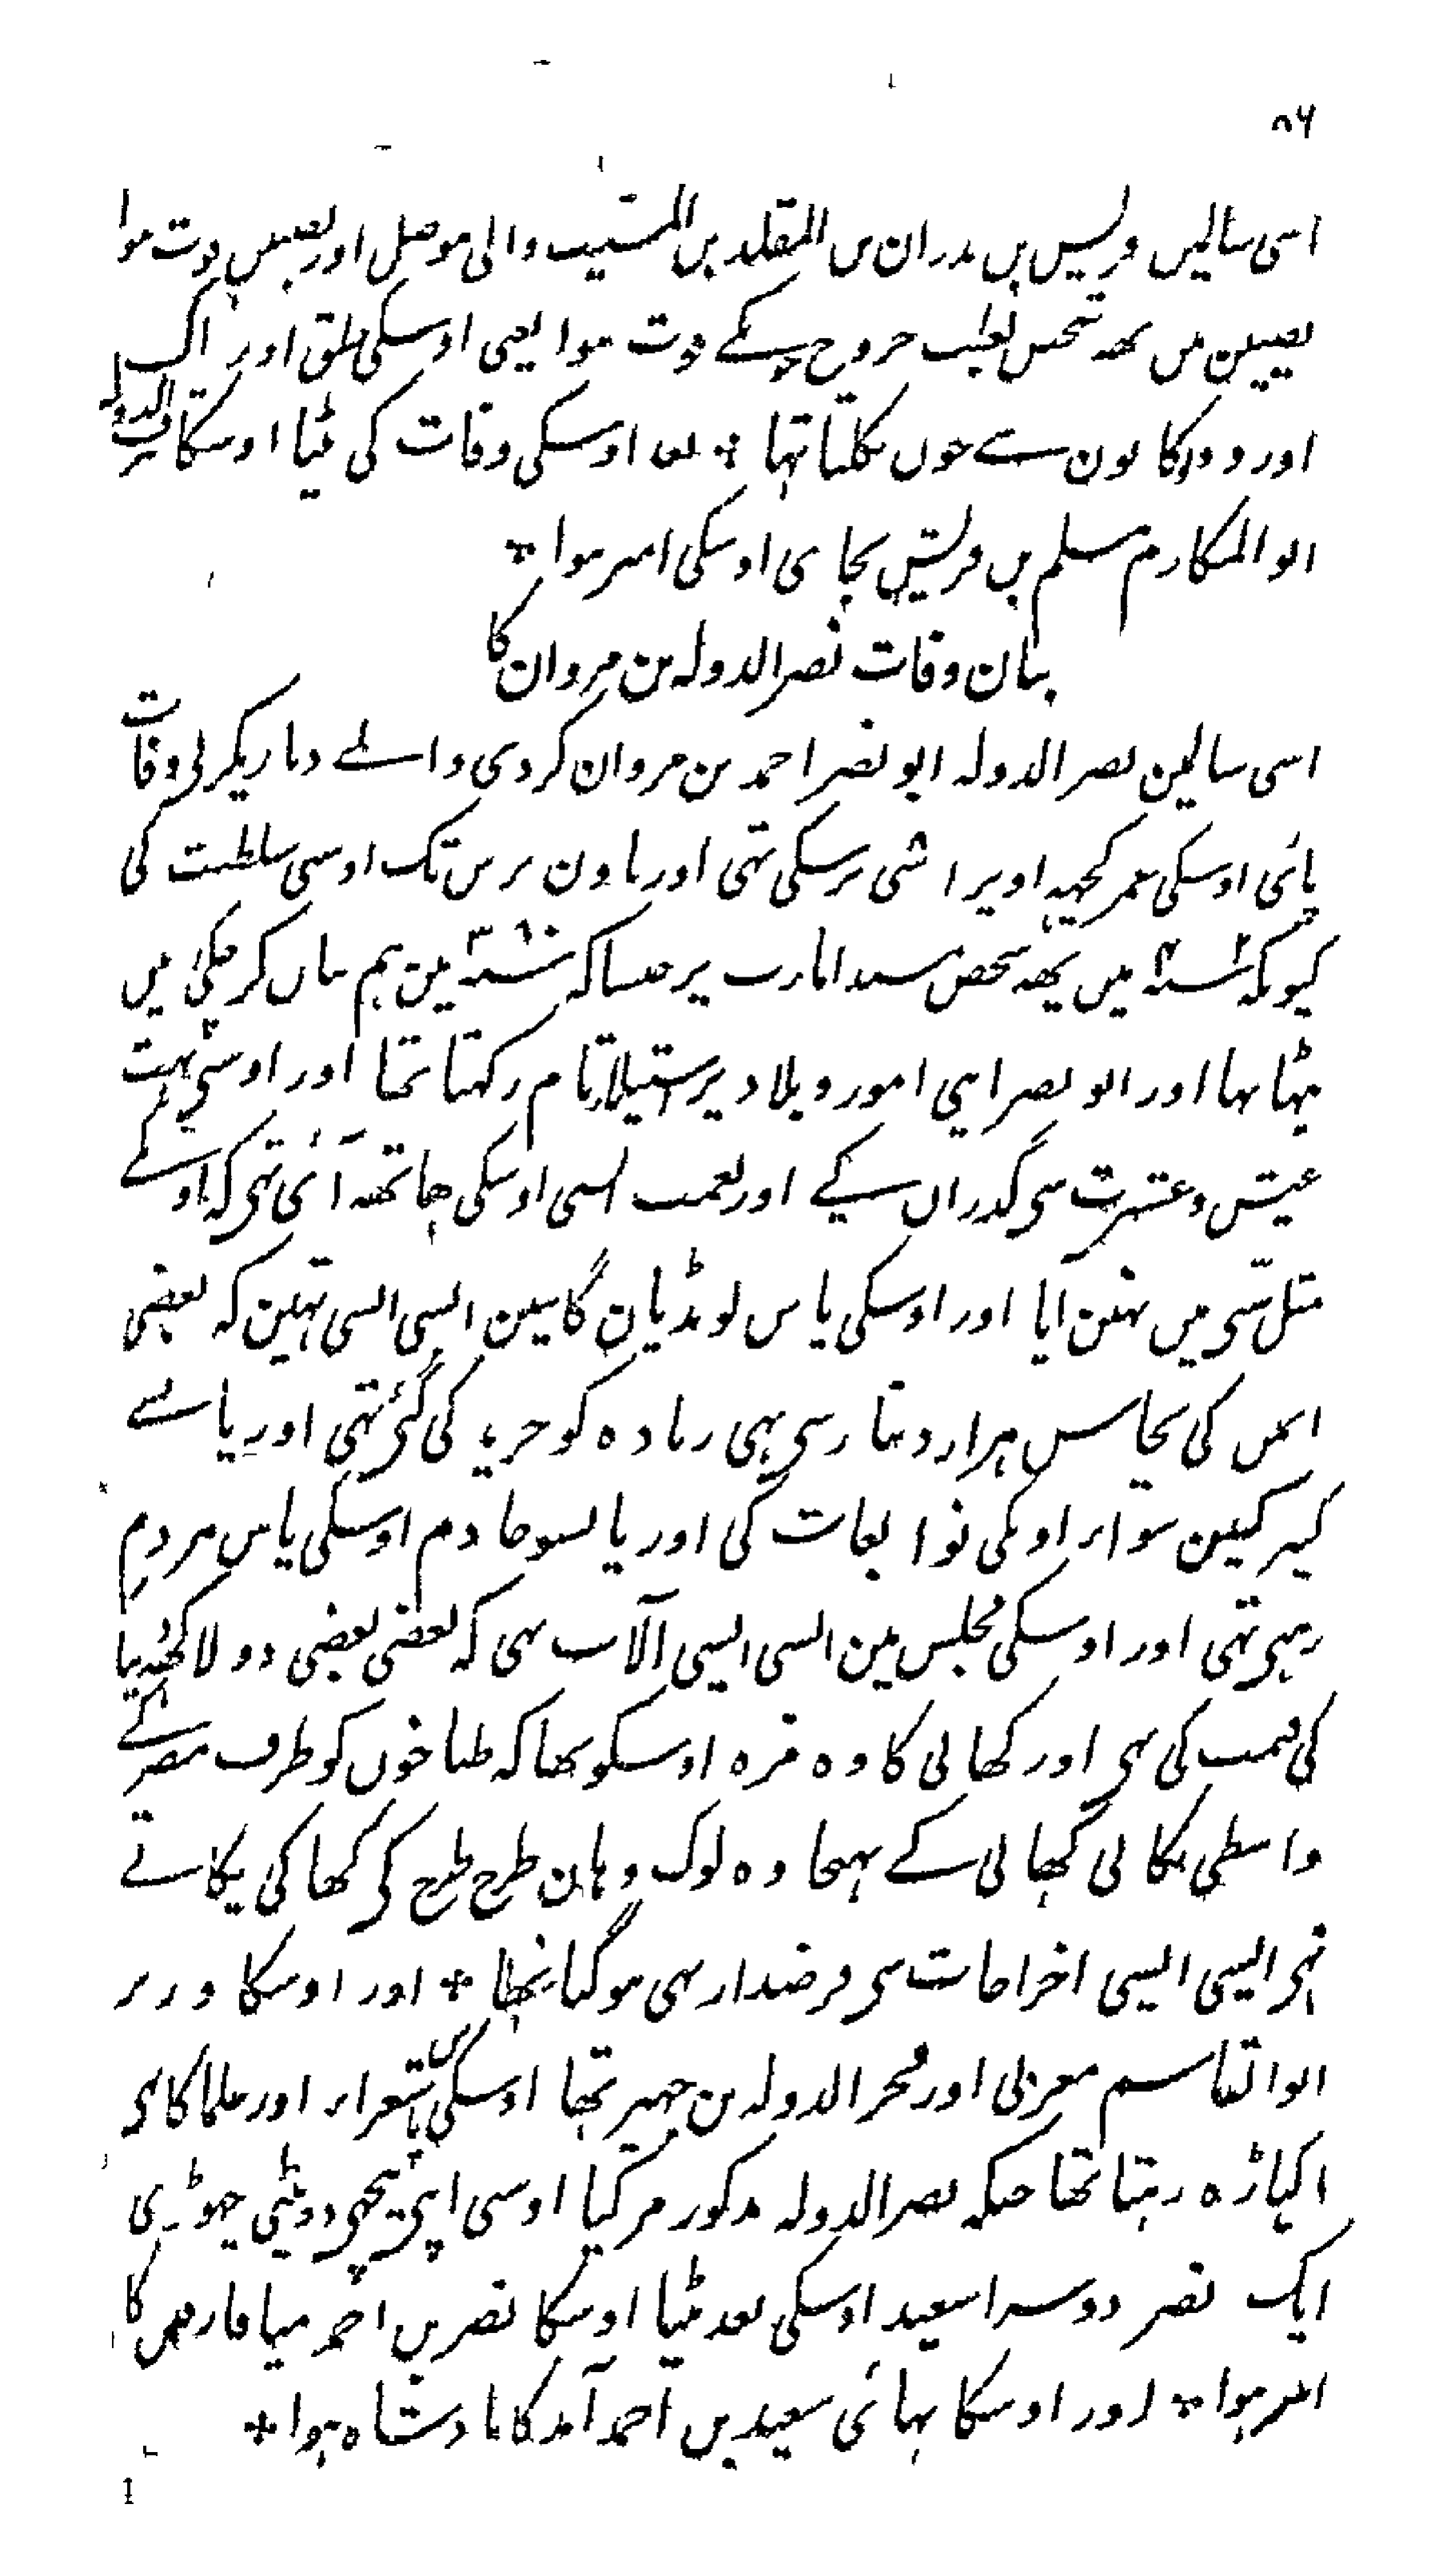 ۸۶
اسی سالیں قریش بن بدران بن المقلد بن المسیب والی موصل اور نصیبین فوت ہوا
نصیبین میں یہہ شخص بسبب خروج کے فوت ہوا یعنی اوسکی حلق اور ناک
اور دونو کانون سے خون نکلتا تہا + بعد اوسکی وفات کی بیٹا اوسکا شرف الدولہ
ابو المکارم مسلم بن قریش بجای اوسکی امیر ہوا +
بیان وفات نصر الدولہ بن مروان کا
اسی سالین نصر الدولہ ابو نصر احمد بن مروان کردی والے دیار بکر نی وفات
پائی اوسکی عمر کچہہ اوپر اسّی برسکی تہی اور باون برس تک اوسی سلطنت کی
کیونکہ سنہ ۴۰۲ میں یہہ شخص مسند امارت پر جیسا کہ سنہ ۳۸۰ مین ہم بیان کر چکی ہیں
بیٹہا تہا اور ابو نصر اپنی امور و بلاد پر استیلا تام رکہتا تہا اور اوسنی بہت
عیش و عشرت سی گذران کیے اور نعمت ایسی اوسکی ہاتہہ آئی تہی کہ اوسکے
مثل سنی میں نہین آیا اور اوسکی پاس لونڈیان گاین ایسی ایسی تہین کہ بعضی
انمیں کی پچاس ہزار دینار سی بہی زیادہ کو خرید کی گئی تہی اور پانسے
کنیز کین سوا اونکی توابعات کی اور پانسو خادم اوسکی پاس ہر دم
رہتی تہی اور اوسکی مجلس مین ایسی ایسی آلات تہی کہ بعضی بعضی دو لاکہہ دینار
کی قیمت کی تہی اور کھانی کا وہ مزہ اوسکو تھا کہ طباخوں کو طرف مصر کے
واسطی پکانی کہانی کے بہیجا وہ لوگ وہان طرح طرح کی کھانی پکاتے
تہی ایسی ایسی اخراجات سی قرضدار بہی ہوگیا تہا + اور اوسکا وزیر
ابو القاسم مغربی اور فخر الدولہ بن جہیر تہا اوسکی پاس شعراء اور علما کا بہی
اکہاڑہ رہتا تھا جبکہ نصر الدولہ مذکور مر گیا اوسی اپنی پیچہی دو بیٹی چہوڑی
ایک نصر دوسرا سعید اوسکی بعد بیٹا اوسکا نصر بن احمد میافارقین کا
امیر ہوا + اور اوسکا بہائی سعید بن احمد آمد کا بادشاہ ہوا +